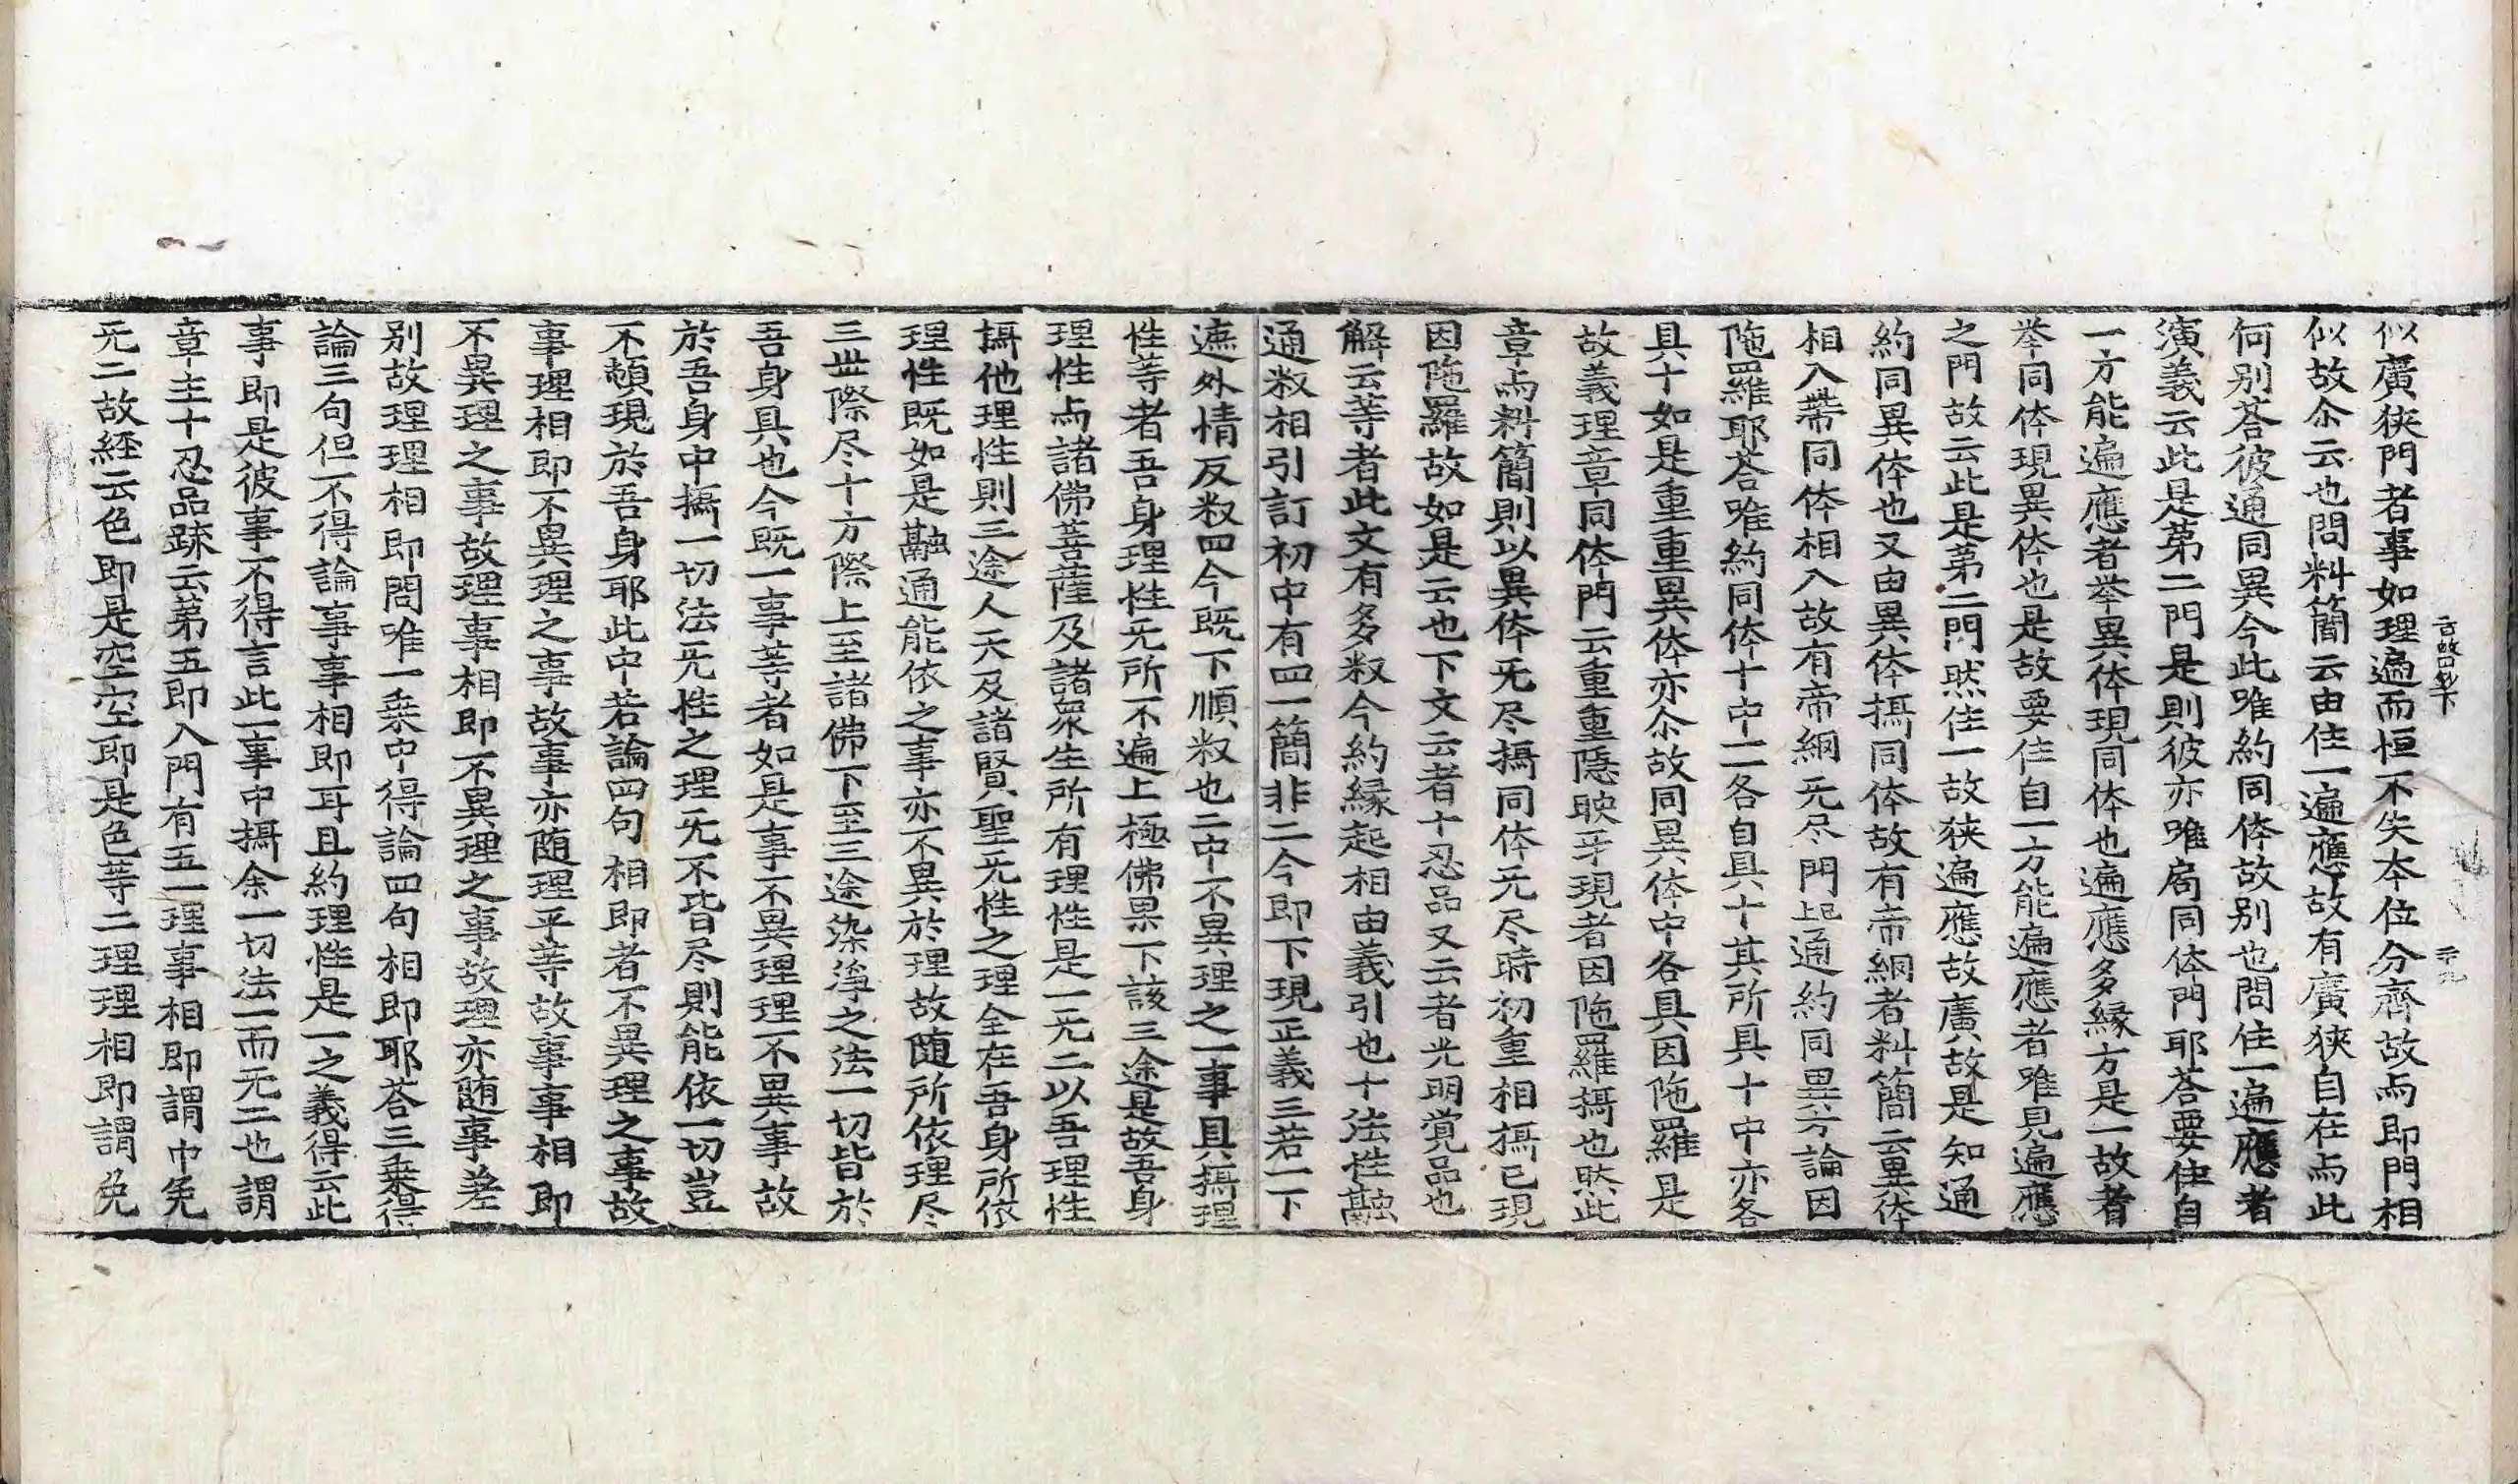 古故口抄下
似廣狹門者事如理遍而恒不失本位分齊故与即門相
似故尒云也問料簡云由住一遍應故有廣狹自在与此
何别荅彼通同異今此唯約同体故别也問住一遍應者
演義云此是第二門是則彼亦唯局同体門耶荅要住自
一方能遍應者举異体現同体也遍應多緣方是一故者
举同体現異体也是故要住自一方能遍應者唯見遍應
之門故云此是第二門然住一故狹遍應故廣故是知通
約同異体也又由異体攝同体故有帝網者料簡云異体
相入帶同体相入故有帝網无尽門上已通約同異方論因
陁羅耶荅唯約同体十中一一各自具十其所具十中亦各
具十如是重重異体亦尒故同異体中各具因陁羅是
故義理章同体門云重重隱映牙現者因陁羅攝也然此
章与料簡則以異体无尽攝同体无尽時初重相攝已現
因陁羅故如是云也下文云者十忍品又云者光明覺品也
解云等者此文有多敉今約緣起相由義引也十法性融
通敉相引訂初中有四一簡非二今即下現正義三若一下
遮外情反敉四今既下順敉也二中不異理之一事具攝理
性等者吾身理性无所不遍上極佛果下該三途是故吾身
理性与諸佛菩薩及諸衆生所有理性是一无二以吾理性
攝他理性則三途人天及諸賢聖无性之理全在吾身所依
理性既如是融通能依之事亦不異於理故随所依理尽
三世際尽十方際上至諸佛下至三途染淨之法一切皆於
吾身具也今既一事等者如是事不異理理不異事故
於吾身中攝一切法无性之理无不皆尽則能依一切豈
不頓現於吾身耶此中若論四句相即者不異理之事故
事理相即不異理之事故事亦随理平等故事事相即
不異理之事故理事相即不異理之事故理亦随事差
别故理理相即問唯一乗中得論四句相即耶荅三乗得
論三句但不得論事事相即耳且約理性是一之義得云此
事即是彼事不得言此一事中攝余一切法一而无二也謂
章主十忍品䟽云第五即入門有五一理事相即謂中免
无二故經云色即是空空即是色等二理理相即謂免